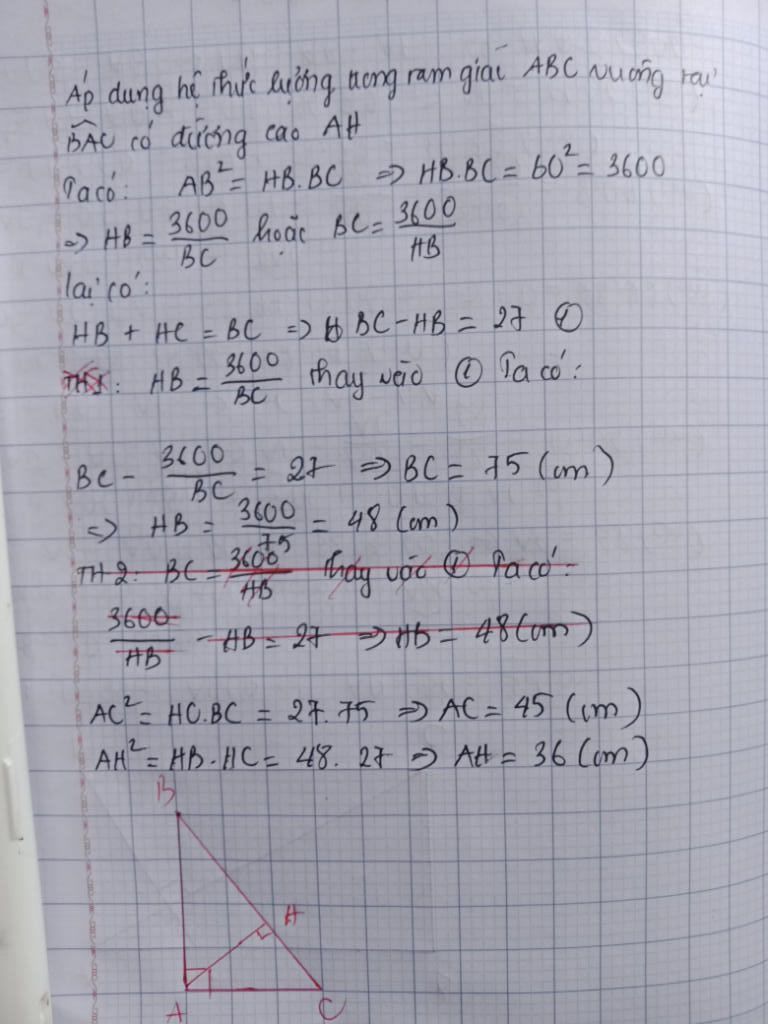 Áp dụng hệ thức lượng trong tam giác ABC vuông tại
BAC có đường cao AH
Ta có: AB² = HB.BC => HB.BC = 60² = 3600
=> HB = 3600/BC hoặc BC = 3600/HB
lại có:
HB + HC = BC => BC - HB = 27 ①
TH1: HB = 3600/BC thay vào ① Ta có:
BC - 3600/BC = 27 => BC = 75 (cm)
=> HB = 3600/75 = 48 (cm)
TH2: BC = 3600/HB thay vào ① Ta có:
3600/HB - HB = 27 => HB = 48 (cm)
AC² = HC.BC = 27.75 => AC = 45 (cm)
AH² = HB.HC = 48.27 => AH = 36 (cm)
B
H
A
C